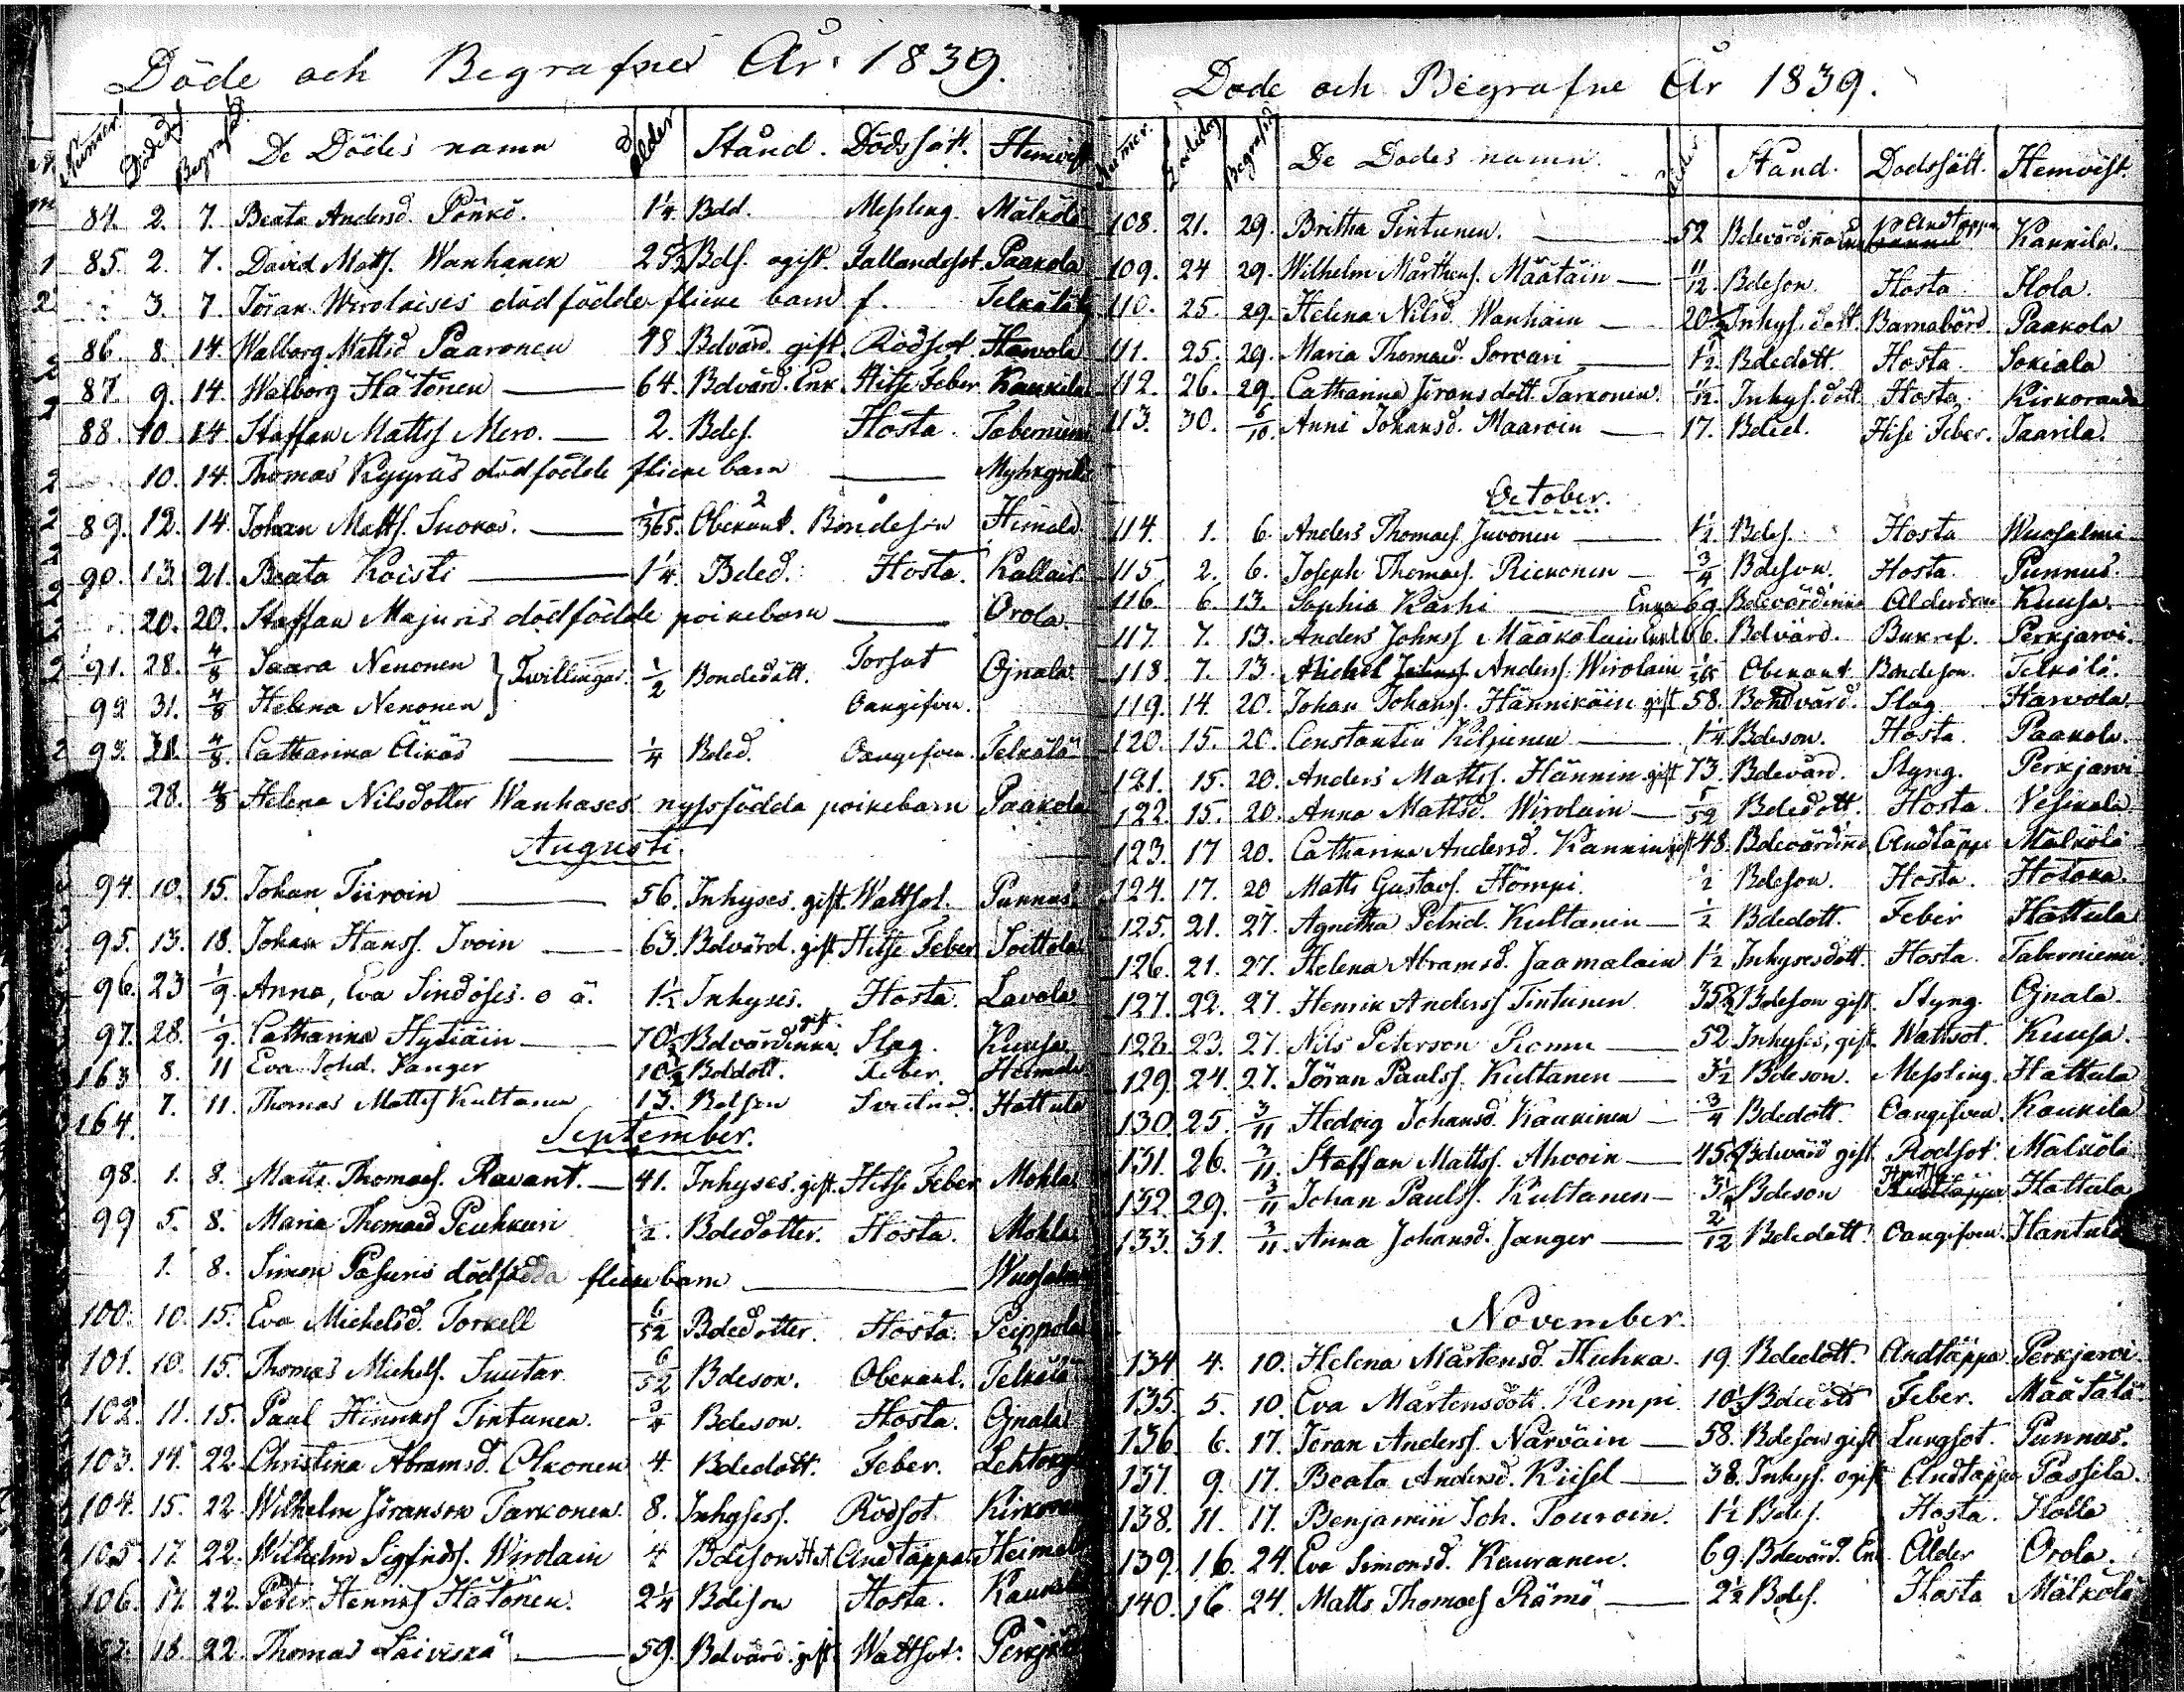 Döde och Begrafne År 1839.
Numer. Dödedag Begrafnd. De Dödes namn Ålder Stånd. Dödssätt. Hemvist
84. 2. 7. Beata Andersd. Pönkö. 1¼ Bdd. Messling. Mälkölä
85. 2. 7. David Matts. Wanhanen 25½ Bds. ogift. Fallandesot Paakola
3. 7. Jöran Wirolaises dödfödde flicke barn f. Telkälä
86. 8. 14. Walborg Mattsd Paaronen 48 Bdvärd. gift. Rödsot Harvola
87. 9. 14. Walborg Hätönen 64. Bdvärd. Enk Hitse Feber Kaukila
88. 10. 14 Staffan Mattss Mero. 2. Bdes. Hosta. Taberniemi
10. 14. Thomas Kyyräs dödfödde flicke barn
89. 12. 14. Johan Matts. Suokas. 1/365. Obekant. Bondeson Heimala
90. 13. 21. Beata Koisti 1¼ Bded. Hosta. Kallais
20. 20. Staffan Majuris dödfödde poikebarn Orola
91. 28. 4/8 Saara Nenonen } Twillingar. ½ Bondedött. Torsot Ojnala
92 31. 4/8 Helena Nenonen Oangifven.
93. 31. 4/8. Catharina Äikäs ¼ Bded. Oangifven. Telkälä
28. 4/8 Helena Nilsdotter Wanhases nyssfödda poikebarn Paakola
Augusti
94. 10. 15. Johan Tiiroin 56. Inhyses. gift. Wattsot. Punnus
95. 13. 18. Johan Hanss. Ivoin 63. Bdvärd. gift Hitse Feber Soittola
96. 23 1/9. Anna, Eva Sindöses. o ä. 1½ Inhyses. Hosta. Lavola
97. 28. 1/9. Catharina Hytiäin 70½ Bdvärdinna. gift Slag. Kuusa
163 8. 11 Eva Johd. Janger 10½ Boldott. Feber. Heimala
164. 7. 11. Thomas Mattss Kultanen 13. Bdson Hattula
September.
98. 1. 8. Matts Thomass. Ravant. 41. Inhyses. gift. Hitse Feber Mohla
99 5. 8. Maria Thomasd Peuhkuri ½. Bdedotter. Hosta. Mohla
1. 8. Simon Pasuris dödfödda flicke barn Wuosalmi
100. 10. 15. Eva Michelsd. Torkell 6/52 Bdedotter. Hosta. Peippola
101. 10. 15. Thomas Michels. Suutar 6/52 Bdeson. Obekant. Telkälä
102. 11. 15. Paul Hinriss Tintunen. 3/4 Bdeson. Hosta. Ojnala
103. 14. 22. Christina Abramsd. Olkonen 4. Bdedott. Feber. Lehtokylä
104. 15. 22 Wilhelm Jöranson Tarkonen. 8. Inhysess. Rödsot. Kirkoranda
105 17. 22. Wilhelm Sigfrids. Wirolain Bdeson Andtäppa Heimala
106. 17. 22. Peter Henriss Hätönen. 2¼ Bdeson Hosta. Kaukila
18. 22. Thomas Läiviskä 59. Bdvärd. gift. Wattsot.
Döde och Begrafne År 1839.
Numer. Dödedag Begrafnd De Dödes namn. Ålder Stånd. Dödssätt. Hemvist.
108. 21. 29. Britha Tintunen. 52 Bdevärdinna Enka Andtäppa Kaukila.
109. 24 29. Wilhelm Mårthens. Määtäin 11/12. Bdeson. Hosta Hola.
110. 25. 29. Helena Nilsd. Wanhain 20½ Inhys. dott. Barnabörd. Paakola
111. 25. 29. Maria Thomasd. Sorvari 1½. Bdedott. Hosta. Sokiala
112. 26. 29. Catharina Jöransdott. Tarkonen. 11/12. Inhys. dott. Hosta. Kirkoranda
113. 30. 6/10. Anni Johansd. Maaroin 17. Bded. Hise Feber. Taarila.
October.
114. 1. 6. Anders Thomass. Juvonen 1½. Bdes. Hosta Wuosalmi
115 2. 6. Joseph Thomass. Riekonen 3/4 Bdeson. Hosta. Punnus.
116. 6. 13. Sophia Kärhi Enka 69. Bdevärdinna Ålderdom Kuusa.
117. 7. 13. Anders Johnss Määkäläin Enkl 66. Bdvärd. Bukref. Perkjärvi.
118. 7. 13. Michel Anderss. Wirolain Obekant Bondeson. Telkälä.
119. 14. 20. Johan Johanss. Hännikäin gift 58. Bondvärd. Slag. Harvola
120. 15. 20. Constantin Kilpinen 1¼ Bdeson. Hosta. Paakola.
121. 15. 20. Anders Mattss. Hännin gift 73. Bdevärd. Styng. Perkjärvi
122. 15. 20. Anna Mattsd. Wirolain 5/52 Bdedott. Hosta. Vesikala
123. 17 20. Catharina Andersd. Kannin gift 48. Bdevärdinna Andtäppa Mälkölä
124. 17. 20 Matts Gustavs. Hömpi. ½ Bdeson. Hosta. Hotoka.
125. 21. 27. Agnetha Petrid. Kultanin ½ Bdedott. Feber Hattula
126. 21. 27. Helena Abramsd. Jaamalain 1½ Inhysesdott. Hosta. Taberniemi
127. 22. 27. Henrik Anderss Tintunen 35½ Bdeson gift. Styng. Ojnala.
128. 23. 27. Nils Peterson Romu 52 Inhyses, gift. Wattsot. Kuusa.
129. 24. 27. Jöran Paulss. Kultanen 3½ Bdeson. Messling. Hattula
130. 25. 3/11 Hedvig Johansd. Kaukinen 3/4 Bdedott. Oangifven. Kaukila
131. 26. 3/11. Staffan Mattss. Ahvoin 45½ Bdevärd gift. Rödsot. Mälkölä
132. 29. 3/11 Johan Paulss. Kultanen 3½ Bdeson Hattula
133. 31. 3/11. Anna Johansd. Janger 2/12 Bdedott. Oangifven. Hantula
November.
134 4. 10. Helena Mårtensd. Huhka. 19. Bdedott. Andtäppa Perkjärvi.
135. 5. 10. Eva Mårtensdott. Kempi. 10½ Bdedott Feber. Määtälä
136. 6. 17. Jöran Anderss. Närväin 58. Bdeson gift Lungsot. Punnus.
137. 9. 17. Beata Andersd. Kiisel 38. Inhys. ogift Andtäppa Passila.
138. 11. 17. Benjamin Joh. Touroin. 1½ Bdes. Hosta. Holla
139. 16. 24. Eva Simonsd. Keuranen. 69. Bdevärd. Enk Ålder Orola.
140. 16 24. Matts Thomass Rämö 2½ Bdes. Hosta Mälkölä